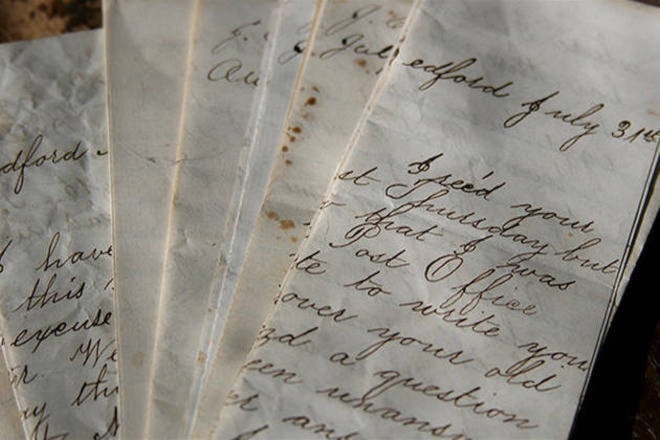 dford
I have
this
excuse
r. We
ay thi
J.
Au
J.
Jul
edford July 31st
I rec'd your
st Thursday but
that I was
Post Office
te to write you
over your old
zd a question
een unansw
er an